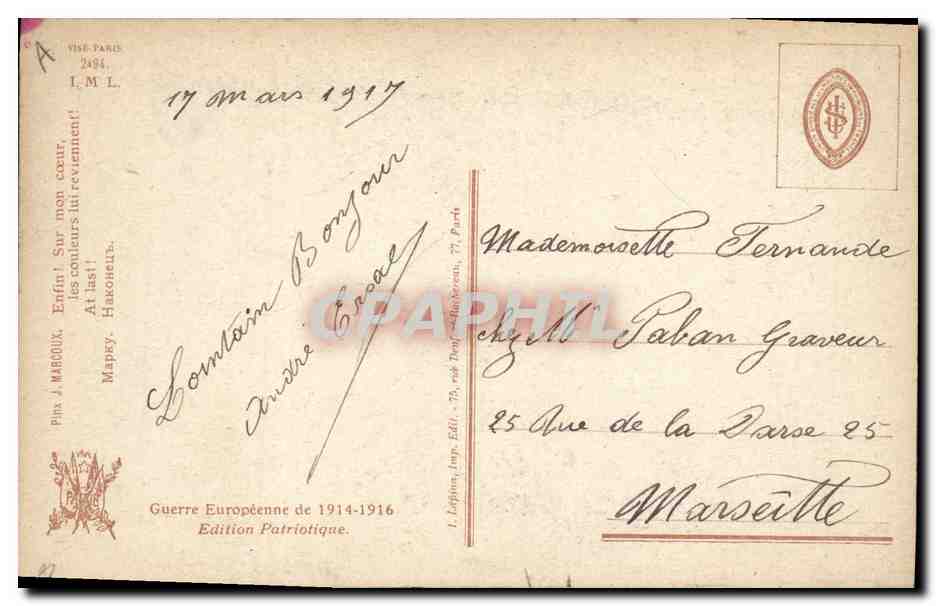 A
VISÉ-PARIS
2494.
I. M L.
Pinx J. MARCOUX. Enfin! Sur mon cœur,
les couleurs lui reviennent!
At last!
Марку. Наконецъ.
17 Mars 1917
Lointain Bonjour
André Ersal
Guerre Européenne de 1914-1916
Edition Patriotique.
I. Lapina, Imp. Edit. - 75, rue Denfert-Rochereau, 77, Paris
Mademoiselle Fernande
chez Mr Paban Graveur
25 Rue de la Darse 25
Marseille
CPAPHIL